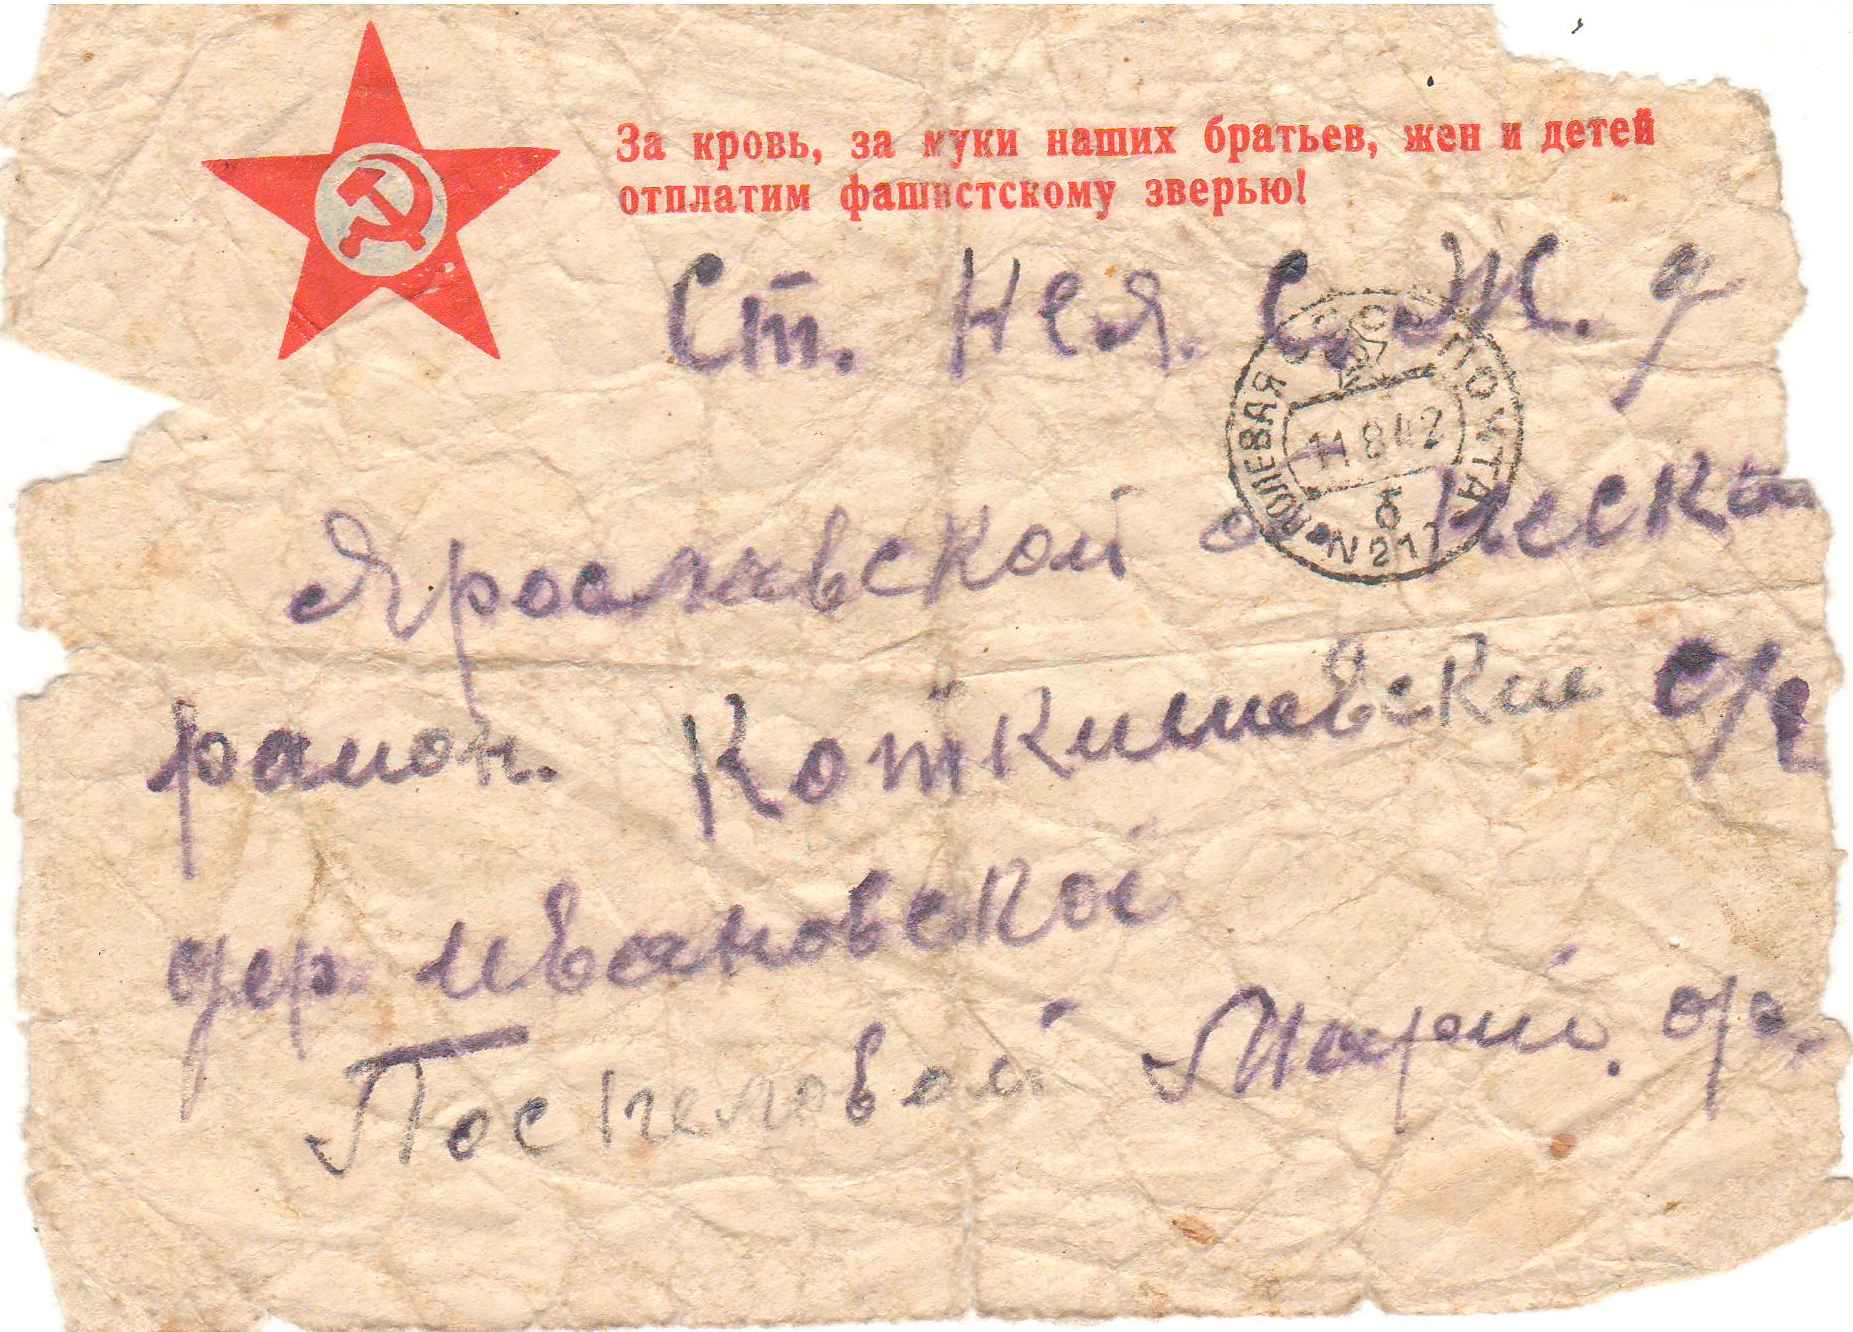 За кровь, за муки наших братьев, жен и детей
отплатим фашистскому зверью!
Ст. Нея. С. Ж. д
ПОЛЕВАЯ ПОЧТА
11 8 42
б
N 217
Ярославской о Нески
район. Откишевский с/с
дер. Ивановской
Поспеловой Марии.